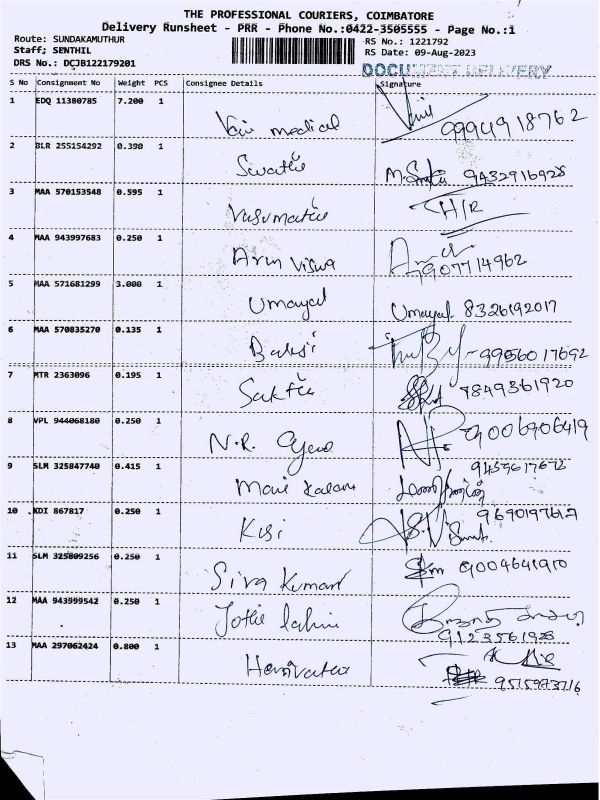 THE PROFESSIONAL COURIERS, COIMBATORE
Delivery Runsheet - PRR - Phone No.:0422-3505555 - Page No.:1
Route: SUNDAKAMUTHUR
RS No.: 1221792
Staff; SENTHIL
RS Date: 09-Aug-2023
DRS No.: DCJB122179201
DOCUMENT DELIVERY
S No Consignment No Weight PCS Consignee Details Signature
1 EDQ 11380785 7.200 1 Vani medical 9994918762
2 BLR 255154292 0.390 1 Swathi 9432916928
3 MAA 570153548 0.595 1 Vasumathi H/R
4 MAA 943997683 0.250 1 Arun Viswa 9907714962
5 MAA 571681299 3.000 1 Umayal Umayal 8326192017
6 MAA 570835270 0.135 1 9956017692
7 MTR 2363096 0.195 1 Sakthi 9849361920
8 VPL 944068180 0.250 1 N.R. 9006906419
9 SLM 325847740 0.415 1 Mani
10 KDI 867817 0.250 1
11 SLM 325809256 0.250 1 Siva Kumar 9004641910
12 MAA 943999542 0.250 1 Jothi 9123561928
13 MAA 297062424 0.800 1